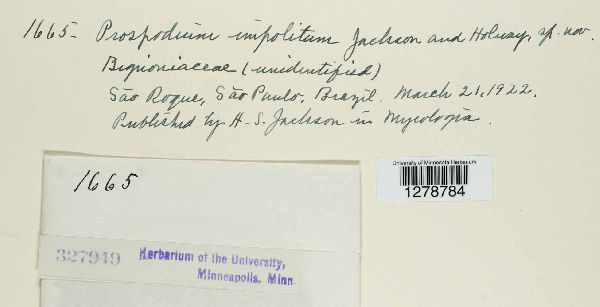 1665- Prospodium impolitum Jackson and Holway, sp. nov.
Bignoniaceae (unidentified)
São Roque, São Paulo, Brazil. March 21, 1922.
Published by H. S. Jackson in Mycologia.
University of Minnesota Herbarium
1278784
1665
327949
Herbarium of the University,
Minneapolis, Minn.